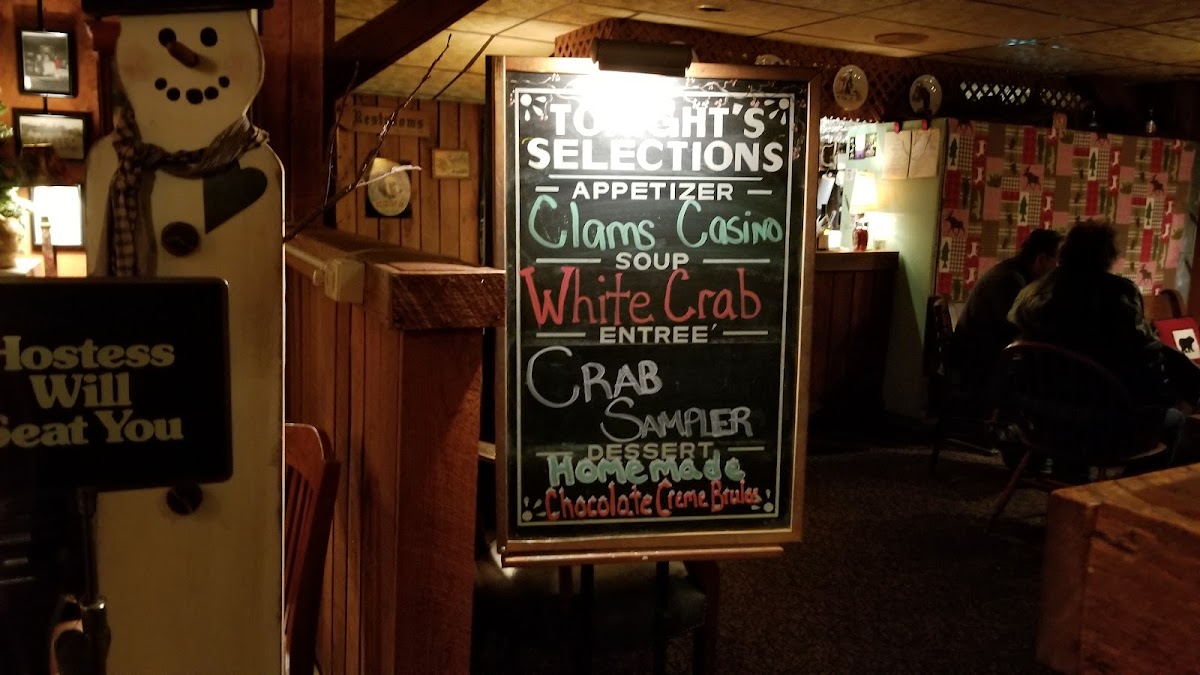 Restrooms
TONIGHT'S
SELECTIONS
APPETIZER
Clams Casino
SOUP
White Crab
ENTREE'
CRAB
SAMPLER
DESSERT
Homemade
Chocolate Creme Brulee
Hostess
Will
Seat You